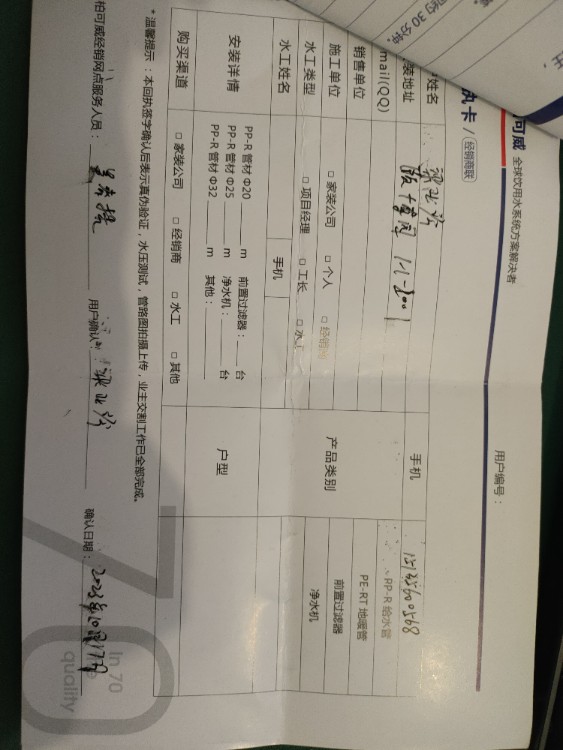 可威 全球饮用水系统方案解决者
用户编号：
执卡 / 经销商联
姓名
手机 15135600568
装地址 1-1-2001
mail(QQ)
销售单位
施工单位 □ 家装公司 □ 个人 □ 经销商
水工类型 □ 项目经理 □ 工长 □ 水工
水工姓名 手机
产品类别
PP-R 给水管
PE-RT 地暖管
前置过滤器
净水机
安装详情
PP-R 管材 Φ20 m 前置过滤器： 台
PP-R 管材 Φ25 m 净水机： 台
PP-R 管材 Φ32 m 其他：
户型
购买渠道 □ 家装公司 □ 经销商 □ 水工 □ 其他
*温馨提示：本回执签字确认后表示真伪验证，水压测试，管路图拍摄上传，业主交割工作已全部完成。
柏可威经销网点服务人员：
用户确认：
确认日期： 2023年10月17日
70
In 70
quality
约 30 分钟，